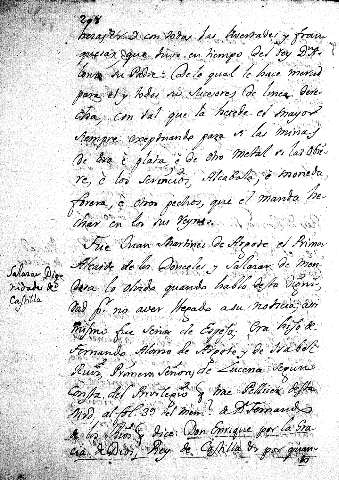 298
con todas las libertades y fran
quezas que tuvo en tiempo del Rey Dn. A
lonso su Padre: de lo qual le hace merced
para el y todos sus sucesores de linea dere
cha, con tal que la herede el mayor
siempre exceptuando para si las minas
de oro è plata è de otro metal si las obie
re, è los servicios, Alcabala, è moneda
forera, è otros pechos, que el manda he
char en los sus Reynos.
Fue Juan Martinez de Argote el Primer
Alcaide de los Donceles y Salazar de men
doza lo olvidó quando hablò desta Digni
dad pr. no aver llegado a su noticia: asi
mismo fue Señor de Espejo, era hijo de
Fernando Alonso de Argote y de Isabel
Ruiz Primera Señora de Lucena segun
Consta del Privilegio q trae Pellicer
al fol. 39 del mem. de Dn. Fernando
de los Rios y dice: Don Enrique por la Gra
cia de Dios, Rey de Castilla &c. por quan
Salazar Dig
nidades de
Castilla